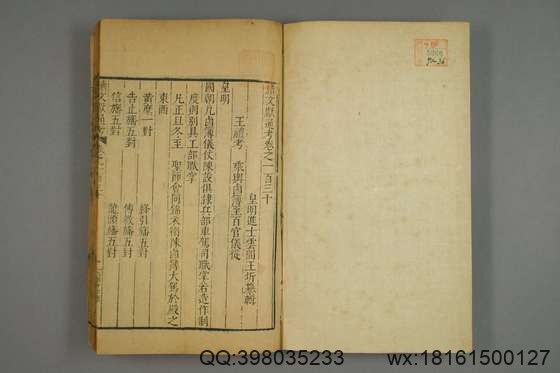 續文獻通考卷之一百三十
皇明進士雲間王圻纂輯
王禮考 乘輿鹵簿 百官儀從
皇明
國朝凡鹵簿儀仗陳設俱隸兵部車駕司職掌若造作制
度詞別具工部職掌
凡正旦冬至 聖節會同錦衣衛陳鹵簿大駕於殿之
東西
黃麾一對 絳引旛五對
告止旛五對 傳教旛五對
信旛五對 龍頭旛五對
續文獻通考
QQ:398035233 wx:18161500127